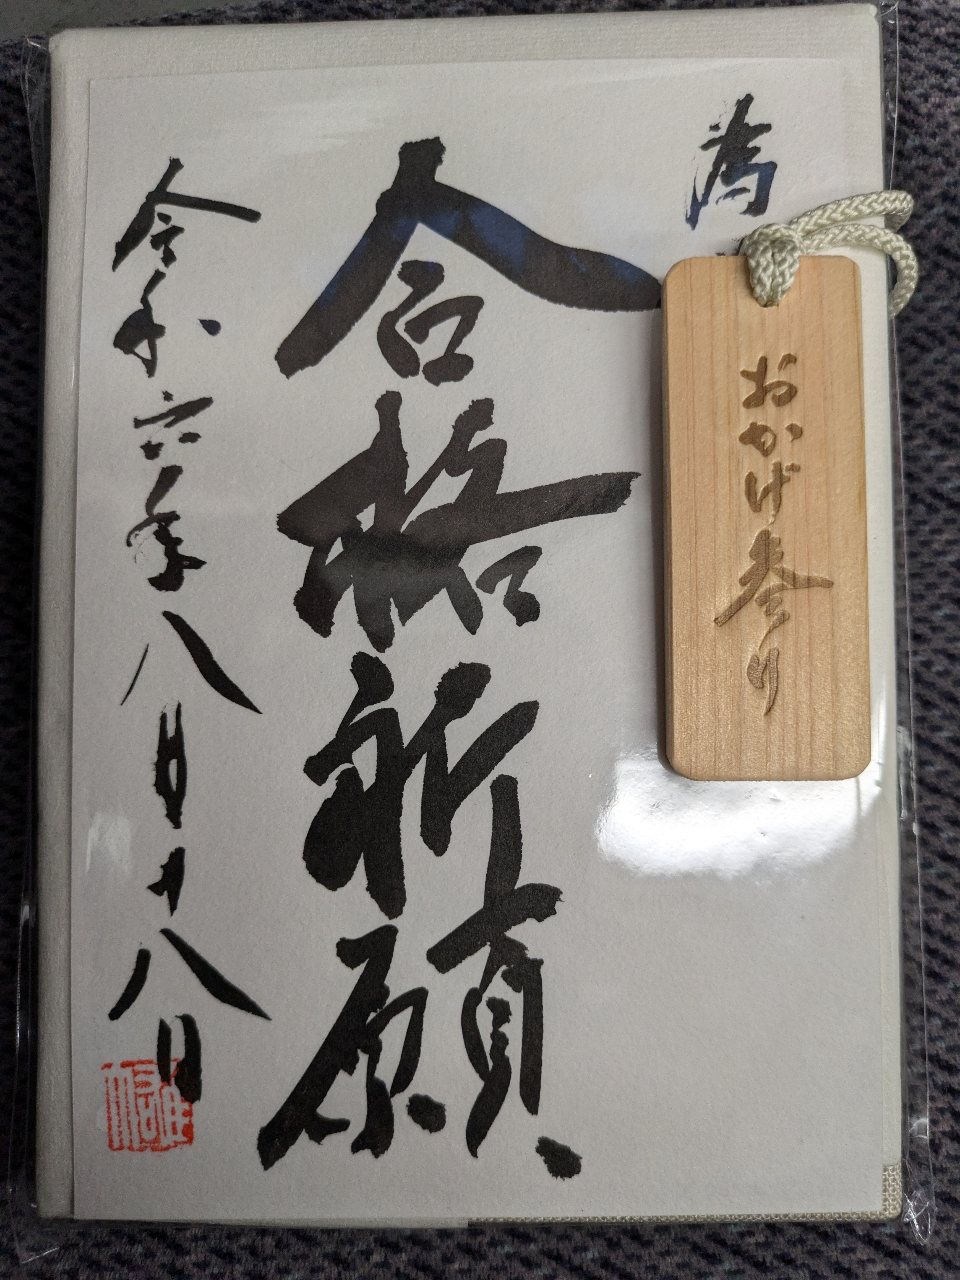 為
合格祈願
令和六年八月十八日
おかげ参り